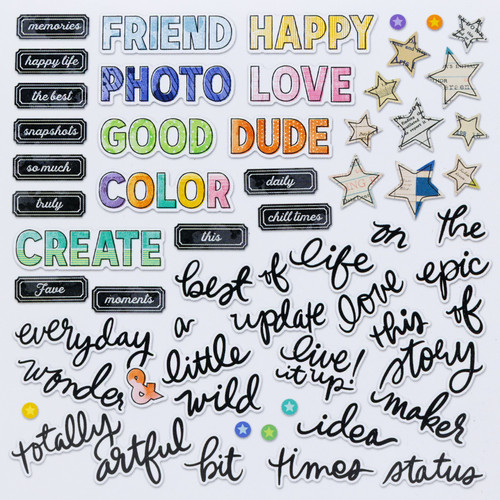 memories
FRIEND
HAPPY
happy life
the best
PHOTO
LOVE
snapshots
GOOD
DUDE
so much
truly
COLOR
daily
chill times
CREATE
this
Fave
moments
on
the
best
of
life
epic
everyday
a
update
love
this
of
wonder
&
little
live
it up!
story
wild
maker
totally
artful
bit
idea
times
status